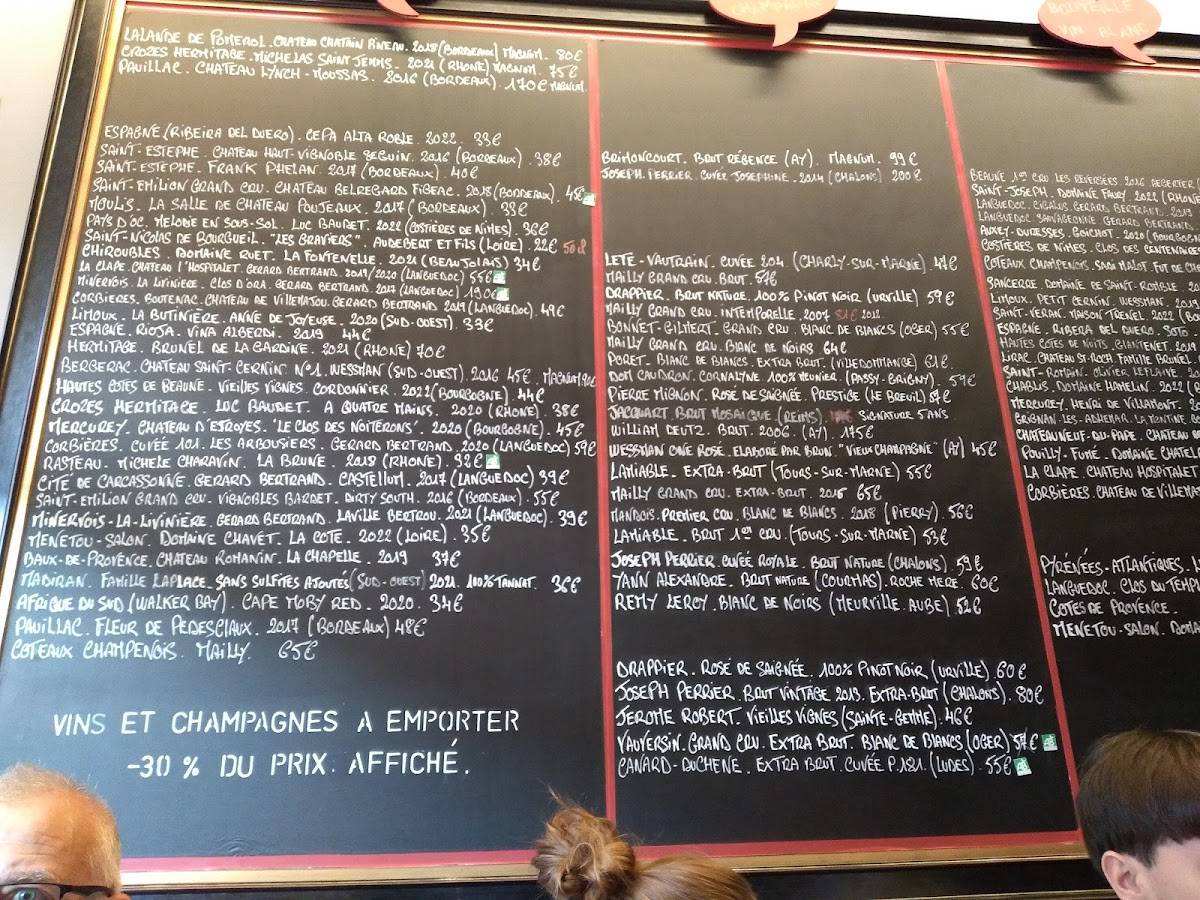 BOUTEILLE
VIN BLANC
LALANDE DE POMEROL. CHATEAU CHATAIN PINEAU. 2018 (BORDEAUX) MAGNUM. 80€
CROZES HERMITAGE. MICHELAS SAINT JEMMS. 2021 (RHONE) MAGNUM. 75€
PAUILLAC. CHATEAU LYNCH-MOUSSAS. 2016 (BORDEAUX). 170€ MAGNUM.
ESPAGNE (RIBEIRA DEL DUERO). CEPA ALTA ROBLE. 2022. 33€
SAINT-ESTEPHE. CHATEAU HAUT-VIGNOBLE SEGUIN. 2016 (BORDEAUX). 38€
SAINT-ESTEPHE. FRANK PHELAN. 2017 (BORDEAUX). 40€
SAINT-EMILION GRAND CRU. CHATEAU BELREGARD FIGEAC. 2018 (BORDEAUX). 45€
MOULIS. LA SALLE DE CHATEAU POUJEAUX. 2017 (BORDEAUX). 33€
PAYS D'OC. MELODIE EN SOUS-SOL. LUC BAUDET. 2022 (COSTIÈRES DE NIMES). 32€
SAINT-NICOLAS DE BOURGUEIL. "LES GRAVIERS". AUDEBERT ET FILS (LOIRE). 22€ 50cl
CHIROUBLES. DOMAINE RUET. LA FONTENELLE. 2021 (BEAUJOLAIS) 34€
LA CLAPE. CHATEAU L'HOSPITALET. GERARD BERTRAND. 2019/2020 (LANGUEDOC) 55€
MINERVOIS. LA LIVINIÈRE. CLOS D'ORA. GERARD BERTRAND. 2017 (LANGUEDOC) 190€
CORBIÈRES. BOUTENAC. CHATEAU DE VILLEMAJOU. GERARD BERTRAND. 2019 (LANGUEDOC). 49€
LIMOUX. LA BUTINIÈRE. ANNE DE JOYEUSE. 2020 (SUD-OUEST). 33€
ESPAGNE. RIOJA. VINA ALBERDI. 2019. 44€
HERMITAGE. BRUNEL DE LA GARDINE. 2021 (RHONE) 70€
BERGERAC. CHATEAU SAINT-CERNIN N°1. WESSMAN (SUD-OUEST). 2016 45€. MAGNUM 90€
HAUTES COTES DE BEAUNE. VIEILLES VIGNES. CORDONNIER. 2022 (BOURGOGNE). 44€
CROZES HERMITAGE. LUC BAUDET. A QUATRE MAINS. 2020 (RHONE). 38€
MERCUREY. CHATEAU D'ETROYES. 'LE CLOS DES NOITERONS'. 2020 (BOURGOGNE). 45€
CORBIÈRES. CUVÉE 101. LES ARBOUSIERS. GERARD BERTRAND. 2020 (LANGUEDOC) 59€
RASTEAU. MICHELE CHARAVIN. LA BRUNE. 2018 (RHONE). 32€
CITÉ DE CARCASSONNE. GERARD BERTRAND. CASTELLUM. 2017 (LANGUEDOC) 39€
SAINT-EMILION GRAND CRU. VIGNOBLES BARDET. DIRTY SOUTH. 2016 (BORDEAUX). 55€
MINERVOIS-LA-LIVINIÈRE. GERARD BERTRAND. LAVILLE BERTROU. 2021 (LANGUEDOC). 39€
MENETOU-SALON. DOMAINE CHAVET. LA COTE. 2022 (LOIRE). 35€
BAUX-DE-PROVENCE. CHATEAU ROMANIN. LA CHAPELLE. 2019 37€
MADIRAN. FAMILLE LAPLACE. SANS SULFITES AJOUTÉS (SUD-OUEST) 2021. 100% TANNAT. 36€
AFRIQUE DU SUD (WALKER BAY). CAPE MOBY RED. 2020. 34€
PAUILLAC. FLEUR DE PEDESCLAUX. 2017 (BORDEAUX) 48€
COTEAUX CHAMPENOIS. MAILLY. 65€
VINS ET CHAMPAGNES A EMPORTER
-30 % DU PRIX AFFICHÉ.
BRIMONCOURT. BRUT RÉGENCE (AY). MAGNUM. 99€
JOSEPH PERRIER. CUVÉE JOSEPHINE. 2014 (CHALONS) 200€
LETE-VAUTRAIN. CUVÉE 204 (CHARLY-SUR-MARNE). 47€
MAILLY GRAND CRU. BRUT. 51€
DRAPPIER. BRUT NATURE. 100% PINOT NOIR (URVILLE) 59€
MAILLY GRAND CRU. INTEMPORELLE. 2007 81€ 2012
BONNET-GILMERT. GRAND CRU. BLANC DE BLANCS (OGER) 55€
MAILLY GRAND CRU. BLANC DE NOIRS 64€
PORET. BLANC DE BLANCS. EXTRA BRUT. (VILLEDOMMANGE) 61€
DOM CAUDRON. CORNALYNE 100% MEUNIER (PASSY-GRIGNY). 59€
PIERRE MIGNON. ROSÉ DE SAIGNÉE. PRESTIGE (LE BREUIL) 54€
JACQUART BRUT MOSAÏQUE. (REIMS). SIGNATURE 5 ANS.
WILLIAM DEUTZ. BRUT. 2006. (AY). 175€
WESSMAN ONE ROSÉ. ELABORÉ PAR BRUN. "VIEUX CHAMPAGNE" (AY) 45€
LAMIABLE. EXTRA-BRUT (TOURS-SUR-MARNE) 55€
MAILLY GRAND CRU. EXTRA-BRUT. 2016 65€
MANDOIS. PREMIER CRU. BLANC DE BLANCS. 2018 (PIERRY). 56€
LAMIABLE. BRUT 1er CRU. (TOURS-SUR-MARNE) 53€
JOSEPH PERRIER. CUVÉE ROYALE. BRUT NATURE (CHALONS). 59€
YANN ALEXANDRE. BRUT NATURE (COURMAS). ROCHE MÈRE. 60€
REMY LEROY. BLANC DE NOIRS (MEURVILLE. AUBE). 52€
DRAPPIER. ROSÉ DE SAIGNÉE. 100% PINOT NOIR (URVILLE) 60€
JOSEPH PERRIER. BRUT VINTAGE 2013. EXTRA-BRUT (CHALONS). 80€
JEROME ROBERT. VIEILLES VIGNES (SAINTE-GEMME). 46€
VAUVERSIN. GRAND CRU. EXTRA BRUT. BLANC DE BLANCS (OGER) 57€
CANARD-DUCHENE. EXTRA BRUT. CUVÉE P.181. (LUDES). 55€
BEAUNE 1er CRU LES REVERSÉES. 2016.
SAINT-JOSEPH. DOMAINE FAURY. 2022 (RHONE
LANGUEDOC. CIGALUS. GERARD BERTRAND. 2019
LANGUEDOC. SAUVAGEONNE. GERARD BERTRAND.
AUXEY-DURESSES. BOICHOT. 2020 (BOURGOGNE
COSTIÈRES DE NIMES. CLOS DES CENTENAIRES
COTEAUX CHAMPENOIS. SADI MALOT. FUT DE
SANCERRE. DOMAINE DE SAINT-ROMBLE. 20
LIMOUX. PETIT CERNIN. WESSMAN. 202
SAINT-VERAN. MAISON TRENEL. 2022 (BO
ESPAGNE. RIBERA DEL DUERO. SOTO
HAUTES COTES DE NUITS. CHANTENET. 2019
LIRAC. CHATEAU ST-ROCH. FAMILLE BRUNEL.
SAINT-ROMAIN. OLIVIER LEFLAIVE. 20
CHABLIS. DOMAINE HAMELIN. 2022
MERCUREY. HENRI DE VILLAMONT.
GRIGNAN-LES-ADHEMAR. LA MONTINE
CHATEAUNEUF-DU-PAPE. CHATEAU
POUILLY-FUMÉ. DOMAINE CHATEL
LA CLAPE. CHATEAU HOSPITALET
CORBIÈRES. CHATEAU DE VILLEMA
PYRÉNÉES-ATLANTIQUES.
LANGUEDOC. CLOS DU TEMP
COTES DE PROVENCE.
MENETOU-SALON. DOMA